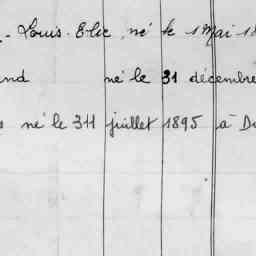 - Louis-Elie, né le 1 Mai 18
and né le 31 décembre
né le 311 juillet 1895 à D